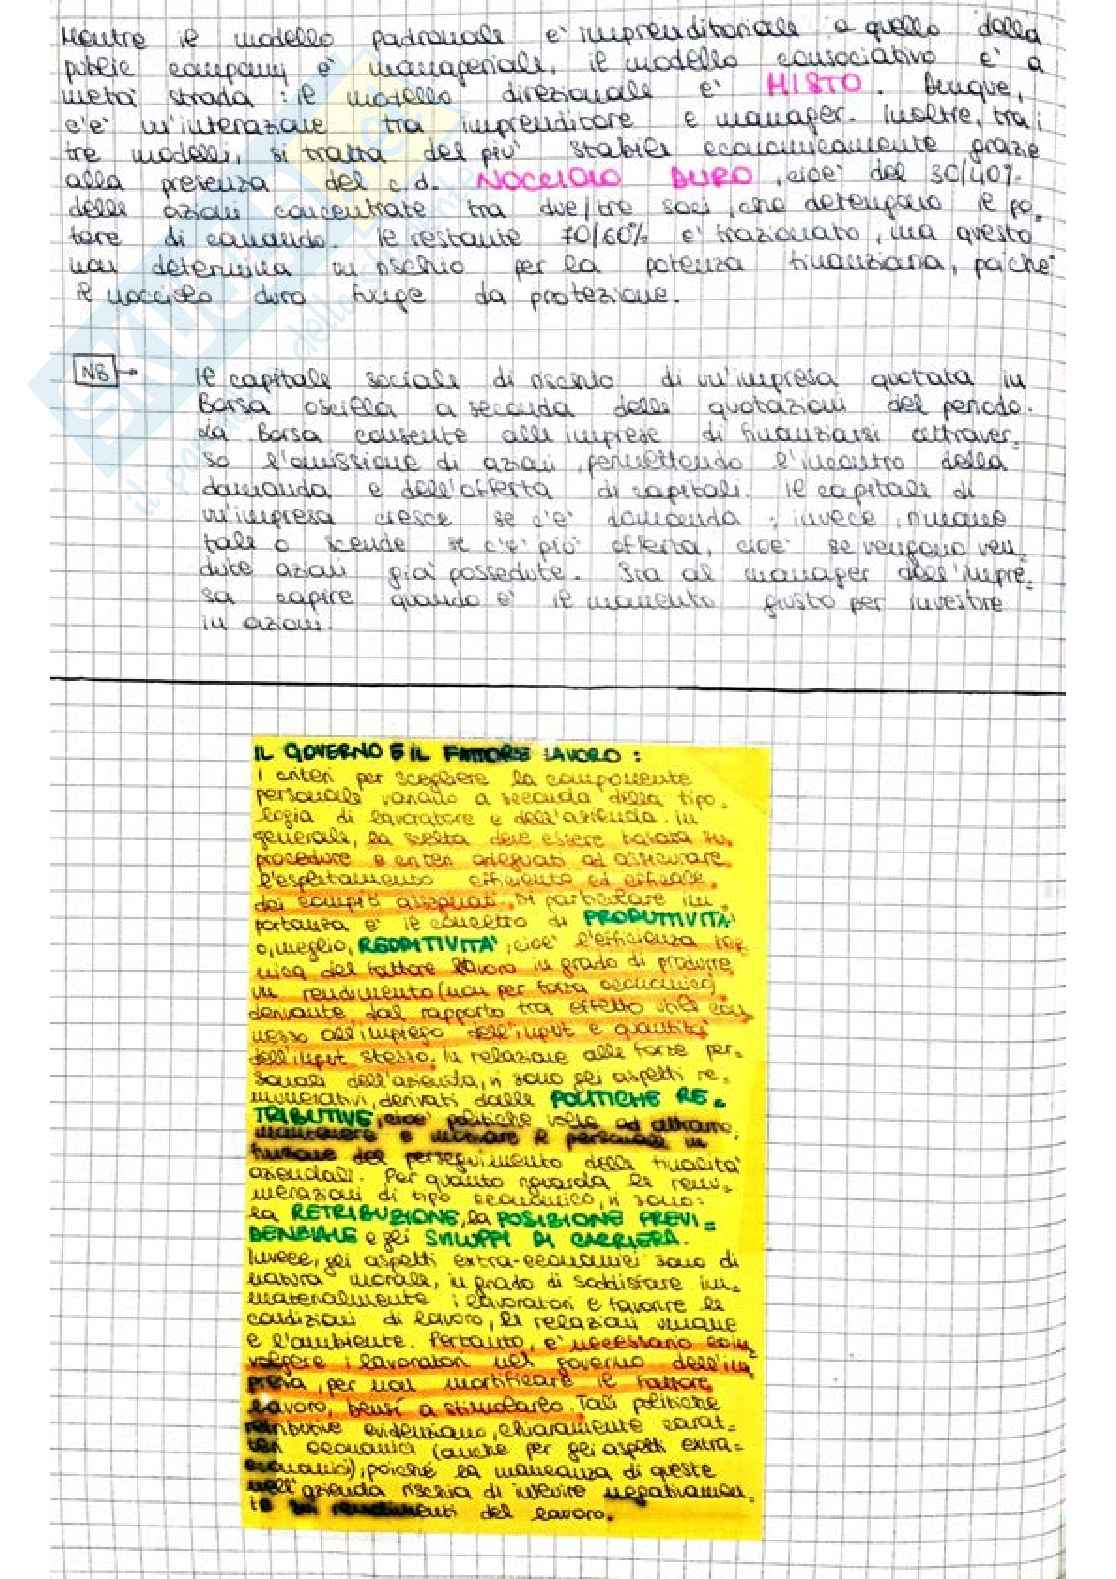 Mentre il modello padronale e' imprenditoriale e quello della
public company e' manageriale, il modello consociativo e' a
meta' strada: il modello direzionale e' MISTO. Dunque,
c'e' un'interazione tra imprenditore e manager. Inoltre, tra i
tre modelli, si tratta del piu' stabile economicamente grazie
alla presenza del c.d. NOCCIOLO DURO, cioe' del 30/40%
delle azioni concentrate tra due/tre soci, che detengono il po-
tere di comando. Il restante 70/60% e' frazionato, ma questo
non determina un rischio per la potenza finanziaria, poiche'
il nocciolo duro funge da protezione.
NB → Il capitale sociale di rischio di un'impresa quotata in
Borsa oscilla a seconda delle quotazioni del periodo.
La Borsa consente alle imprese di finanziarsi attraver-
so l'emissione di azioni, permettendo l'incontro della
domanda e dell'offerta di capitali. Il capitale di
un'impresa cresce se c'e' domanda; invece, rimane
tale o scende se c'e' piu' offerta, cioe' se vengono ven-
dute azioni gia' possedute. Sta al manager dell'impre-
sa capire quando e' il momento giusto per investire
in azioni.
IL GOVERNO E IL FATTORE LAVORO:
I criteri per scegliere la componente
personale variano a seconda della tipo-
logia di lavoratore e dell'azienda. In
generale, la scelta deve essere basata su
procedure e criteri adeguati ad assicurare
l'espletamento efficiente ed efficace
dei compiti assegnati. Di particolare im-
portanza e' il concetto di PRODUTTIVITA'
o, meglio, REDDITIVITA', cioe' l'efficienza tec-
nica del fattore lavoro in grado di produrre
un rendimento (non per forza economico)
derivante dal rapporto tra effetto utile con-
nesso all'impiego dell'input e quantita'
dell'input stesso. In relazione alle forze per-
sonali dell'azienda, vi sono gli aspetti re-
munerativi, derivati dalle POLITICHE RE-
TRIBUTIVE, cioe' politiche volte ad attrarre,
mantenere e motivare il personale in
funzione del perseguimento delle finalita'
aziendali. Per quanto riguarda le remu-
nerazioni di tipo economico, vi sono:
la RETRIBUZIONE, la POSIZIONE PREVI-
DENZIALE e gli SVILUPPI DI CARRIERA.
Invece, gli aspetti extra-economici sono di
natura morale, in grado di soddisfare im-
materialmente i lavoratori e favorire le
condizioni di lavoro, le relazioni umane
e l'ambiente. Pertanto, e' necessario coin-
volgere i lavoratori nel governo dell'im-
presa, per non mortificare il fattore
lavoro, bensi' a stimolarlo. Tali politiche
retributive evidenziano, chiaramente carat-
teri economici (anche per gli aspetti extra-
economici), poiche' la mancanza di queste
nell'azienda rischia di influire negativamen-
te sui rendimenti del lavoro.